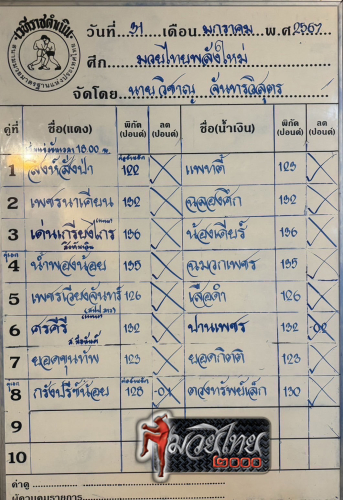 เวทีราชดำเนิน
วันที่ 31 เดือน มกราคม พ.ศ 2567
ศึก มวยไทยพลังใหม่
จัดโดย นายวิชาญ จันทรวิสุตร
คู่ที่ ชื่อ(แดง) พิกัด (ปอนด์) ลด (ปอนด์) ชื่อ(น้ำเงิน) พิกัด (ปอนด์) ลด (ปอนด์)
1 สิงห์สั่งป่า 122 แพทตี้ 123
2 เพชรนาเคียน 132 ฉลองศึก 132
3 เด่นเกรียงไกร 136 น้องเดียร์ 136
คู่เอก
4 น้ำพองน้อย 135 ฉมวกเพชร 135
5 เพชรเวียงจันทร์ 126 เสือดำ 126
6 ศรคีรี 132 ปานเพชร 132 -02
7 ยอดขุนทัพ 123 ยอดกิตติ 123
8 กรังปรีซ์น้อย 128 -01 ดวงทรัพย์เล็ก 130
9
10
มวยไทย
2000
คำดู
ผู้ควบคุมรายการ